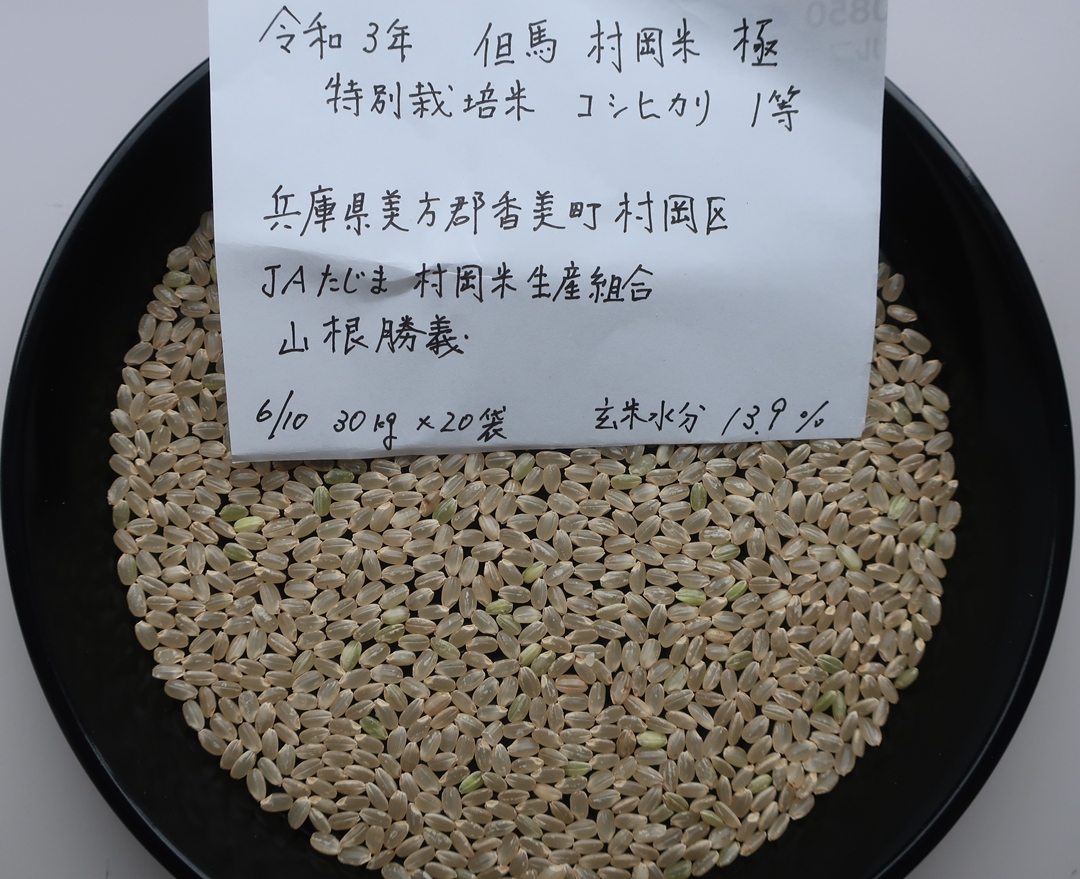 令和3年 但馬 村岡米 極
特別栽培米 コシヒカリ 1等
兵庫県美方郡香美町村岡区
JAたじま 村岡米生産組合
山根勝義
6/10 30kg×20袋 玄米水分 13.9%
0850